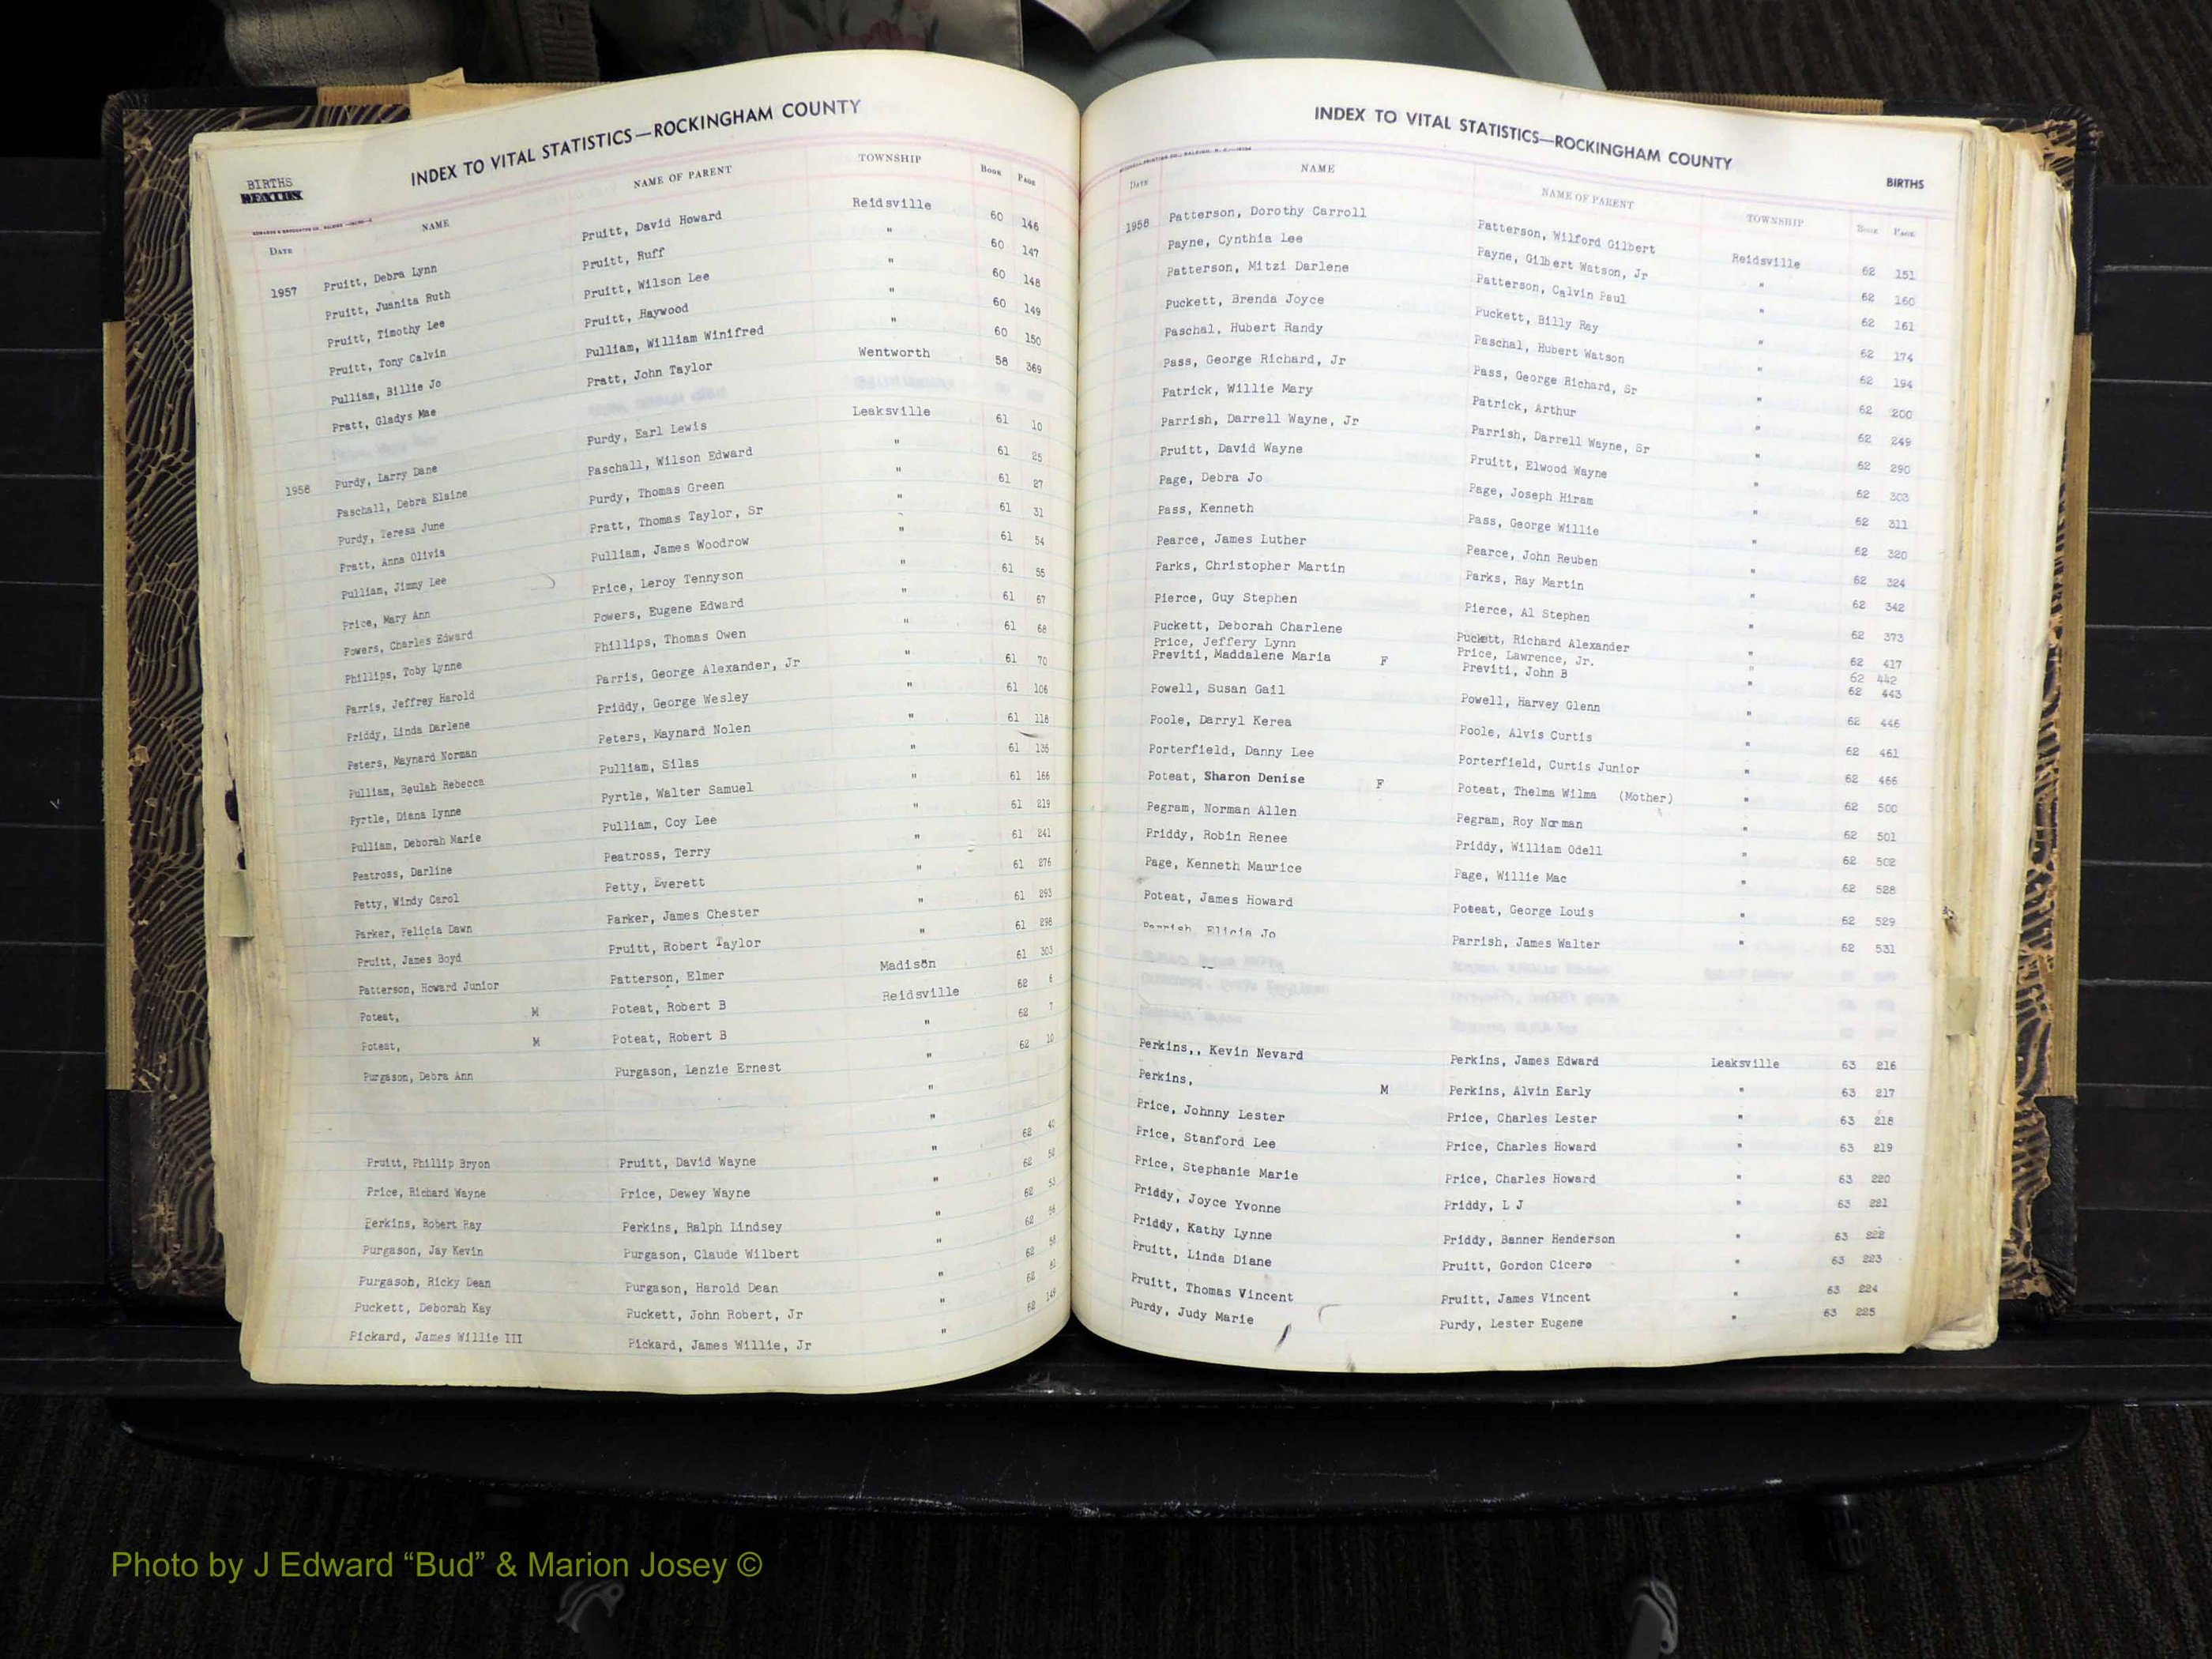 INDEX TO VITAL STATISTICS—ROCKINGHAM COUNTY
BIRTHS
DEATHS
DATE NAME NAME OF PARENT TOWNSHIP BOOK PAGE
1957 Pruitt, Debra Lynn Pruitt, David Howard Reidsville 60 146
Pruitt, Juanita Ruth Pruitt, Ruff " 60 147
Pruitt, Timothy Lee Pruitt, Wilson Lee " 60 148
Pruitt, Tony Calvin Pruitt, Haywood " 60 149
Pulliam, Billie Jo Pulliam, William Winifred " 60 150
Pratt, Gladys Mae Pratt, John Taylor Wentworth 58 369
1958 Purdy, Larry Dane Purdy, Earl Lewis Leaksville 61 10
Paschall, Debra Elaine Paschall, Wilson Edward " 61 25
Purdy, Teresa June Purdy, Thomas Green " 61 27
Pratt, Anna Olivia Pratt, Thomas Taylor, Sr " 61 31
Pulliam, Jimmy Lee Pulliam, James Woodrow " 61 54
Price, Mary Ann Price, Leroy Tennyson " 61 55
Powers, Charles Edward Powers, Eugene Edward " 61 67
Phillips, Toby Lynne Phillips, Thomas Owen " 61 68
Parris, Jeffrey Harold Parris, George Alexander, Jr " 61 70
Priddy, Linda Darlene Priddy, George Wesley " 61 106
Peters, Maynard Norman Peters, Maynard Nolen " 61 118
Pulliam, Beulah Rebecca Pulliam, Silas " 61 135
Pyrtle, Diana Lynne Pyrtle, Walter Samuel " 61 166
Pulliam, Deborah Marie Pulliam, Coy Lee " 61 219
Peatross, Darline Peatross, Terry " 61 241
Petty, Windy Carol Petty, Everett " 61 276
Parker, Felicia Dawn Parker, James Chester " 61 293
Pruitt, James Boyd Pruitt, Robert Taylor " 61 298
Patterson, Howard Junior Patterson, Elmer Madison 61 303
Poteat, M Poteat, Robert B Reidsville 62 6
Poteat, M Poteat, Robert B " 62 7
Purgason, Debra Ann Purgason, Lenzie Ernest " 62 10
"
"
Pruitt, Phillip Bryon Pruitt, David Wayne " 62 40
Price, Richard Wayne Price, Dewey Wayne " 62
Perkins, Robert Ray Perkins, Ralph Lindsey " 62 53
Purgason, Jay Kevin Purgason, Claude Wilbert " 62
Purgason, Ricky Dean Purgason, Harold Dean " 62
Puckett, Deborah Kay Puckett, John Robert, Jr " 62
Pickard, James Willie III Pickard, James Willie, Jr " 62 149
INDEX TO VITAL STATISTICS—ROCKINGHAM COUNTY
BIRTHS
DATE NAME NAME OF PARENT TOWNSHIP BOOK PAGE
1958 Patterson, Dorothy Carroll Patterson, Wilford Gilbert Reidsville 62 151
Payne, Cynthia Lee Payne, Gilbert Watson, Jr " 62 160
Patterson, Mitzi Darlene Patterson, Calvin Paul " 62 161
Puckett, Brenda Joyce Puckett, Billy Ray " 62 174
Paschal, Hubert Randy Paschal, Hubert Watson " 62 194
Pass, George Richard, Jr Pass, George Richard, Sr " 62 200
Patrick, Willie Mary Patrick, Arthur " 62 249
Parrish, Darrell Wayne, Jr Parrish, Darrell Wayne, Sr " 62 290
Pruitt, David Wayne Pruitt, Elwood Wayne " 62 303
Page, Debra Jo Page, Joseph Hiram " 62 311
Pass, Kenneth Pass, George Willie " 62 320
Pearce, James Luther Pearce, John Reuben " 62 324
Parks, Christopher Martin Parks, Ray Martin " 62 342
Pierce, Guy Stephen Pierce, Al Stephen " 62 373
Puckett, Deborah Charlene Puckett, Richard Alexander " 62 417
Price, Jeffery Lynn Price, Lawrence, Jr. " 62 442
Previti, Maddalene Maria F Previti, John B " 62 443
Powell, Susan Gail Powell, Harvey Glenn " 62 446
Poole, Darryl Kerea Poole, Alvis Curtis " 62 461
Porterfield, Danny Lee Porterfield, Curtis Junior " 62 466
Poteat, Sharon Denise F Poteat, Thelma Wilma (Mother) " 62 500
Pegram, Norman Allen Pegram, Roy Norman " 62 501
Priddy, Robin Renee Priddy, William Odell " 62 502
Page, Kenneth Maurice Page, Willie Mac " 62 528
Poteat, James Howard Poteat, George Louis " 62 529
Parrish, Elicia Jo Parrish, James Walter " 62 531
Perkins,, Kevin Nevard Perkins, James Edward Leaksville 63 216
Perkins, M Perkins, Alvin Early " 63 217
Price, Johnny Lester Price, Charles Lester " 63 218
Price, Stanford Lee Price, Charles Howard " 63 219
Price, Stephanie Marie Price, Charles Howard " 63 220
Priddy, Joyce Yvonne Priddy, L J " 63 221
Priddy, Kathy Lynne Priddy, Banner Henderson " 63 222
Pruitt, Linda Diane Pruitt, Gordon Cicero " 63 223
Pruitt, Thomas Vincent Pruitt, James Vincent " 63 224
Purdy, Judy Marie Purdy, Lester Eugene " 63 225
Photo by J Edward “Bud” & Marion Josey ©